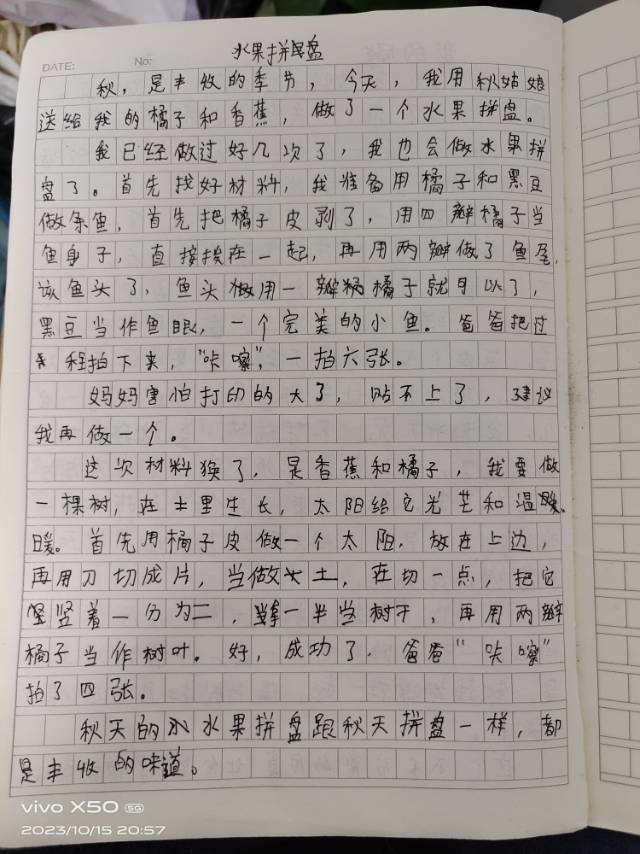 水果拼盘
DATE: No:
秋，是丰收的季节，今天，我用秋姑娘
送给我的橘子和香蕉，做了一个水果拼盘。
我已经做过好几次了，我也会做水果拼
盘了。首先找好材料，我准备用橘子和黑豆
做条鱼，首先把橘子皮剥了，用四瓣橘子当
鱼身子，直接挨在一起，再用两瓣做了鱼尾，
该鱼头了，鱼头做用一瓣橘子就可以了，
黑豆当作鱼眼，一个完美的小鱼。爸爸把过
程拍下来，“咔嚓”，一拍六张。
妈妈害怕打印的大了，贴不上了，建议
我再做一个。
这次材料换了，是香蕉和橘子，我要做
一棵树，在土里生长，太阳给它光芒和温暖。
暖。首先用橘子皮做一个太阳，放在上边，
再用刀切成片，当做土，在切一点，把它
竖竖着一分为二，拿一半当树干，再用两瓣
橘子当作树叶。好，成功了，爸爸“咔嚓”
拍了四张。
秋天的水果拼盘跟秋天拼盘一样，都
是丰收的味道。
vivo X50 5G
2023/10/15 20:57